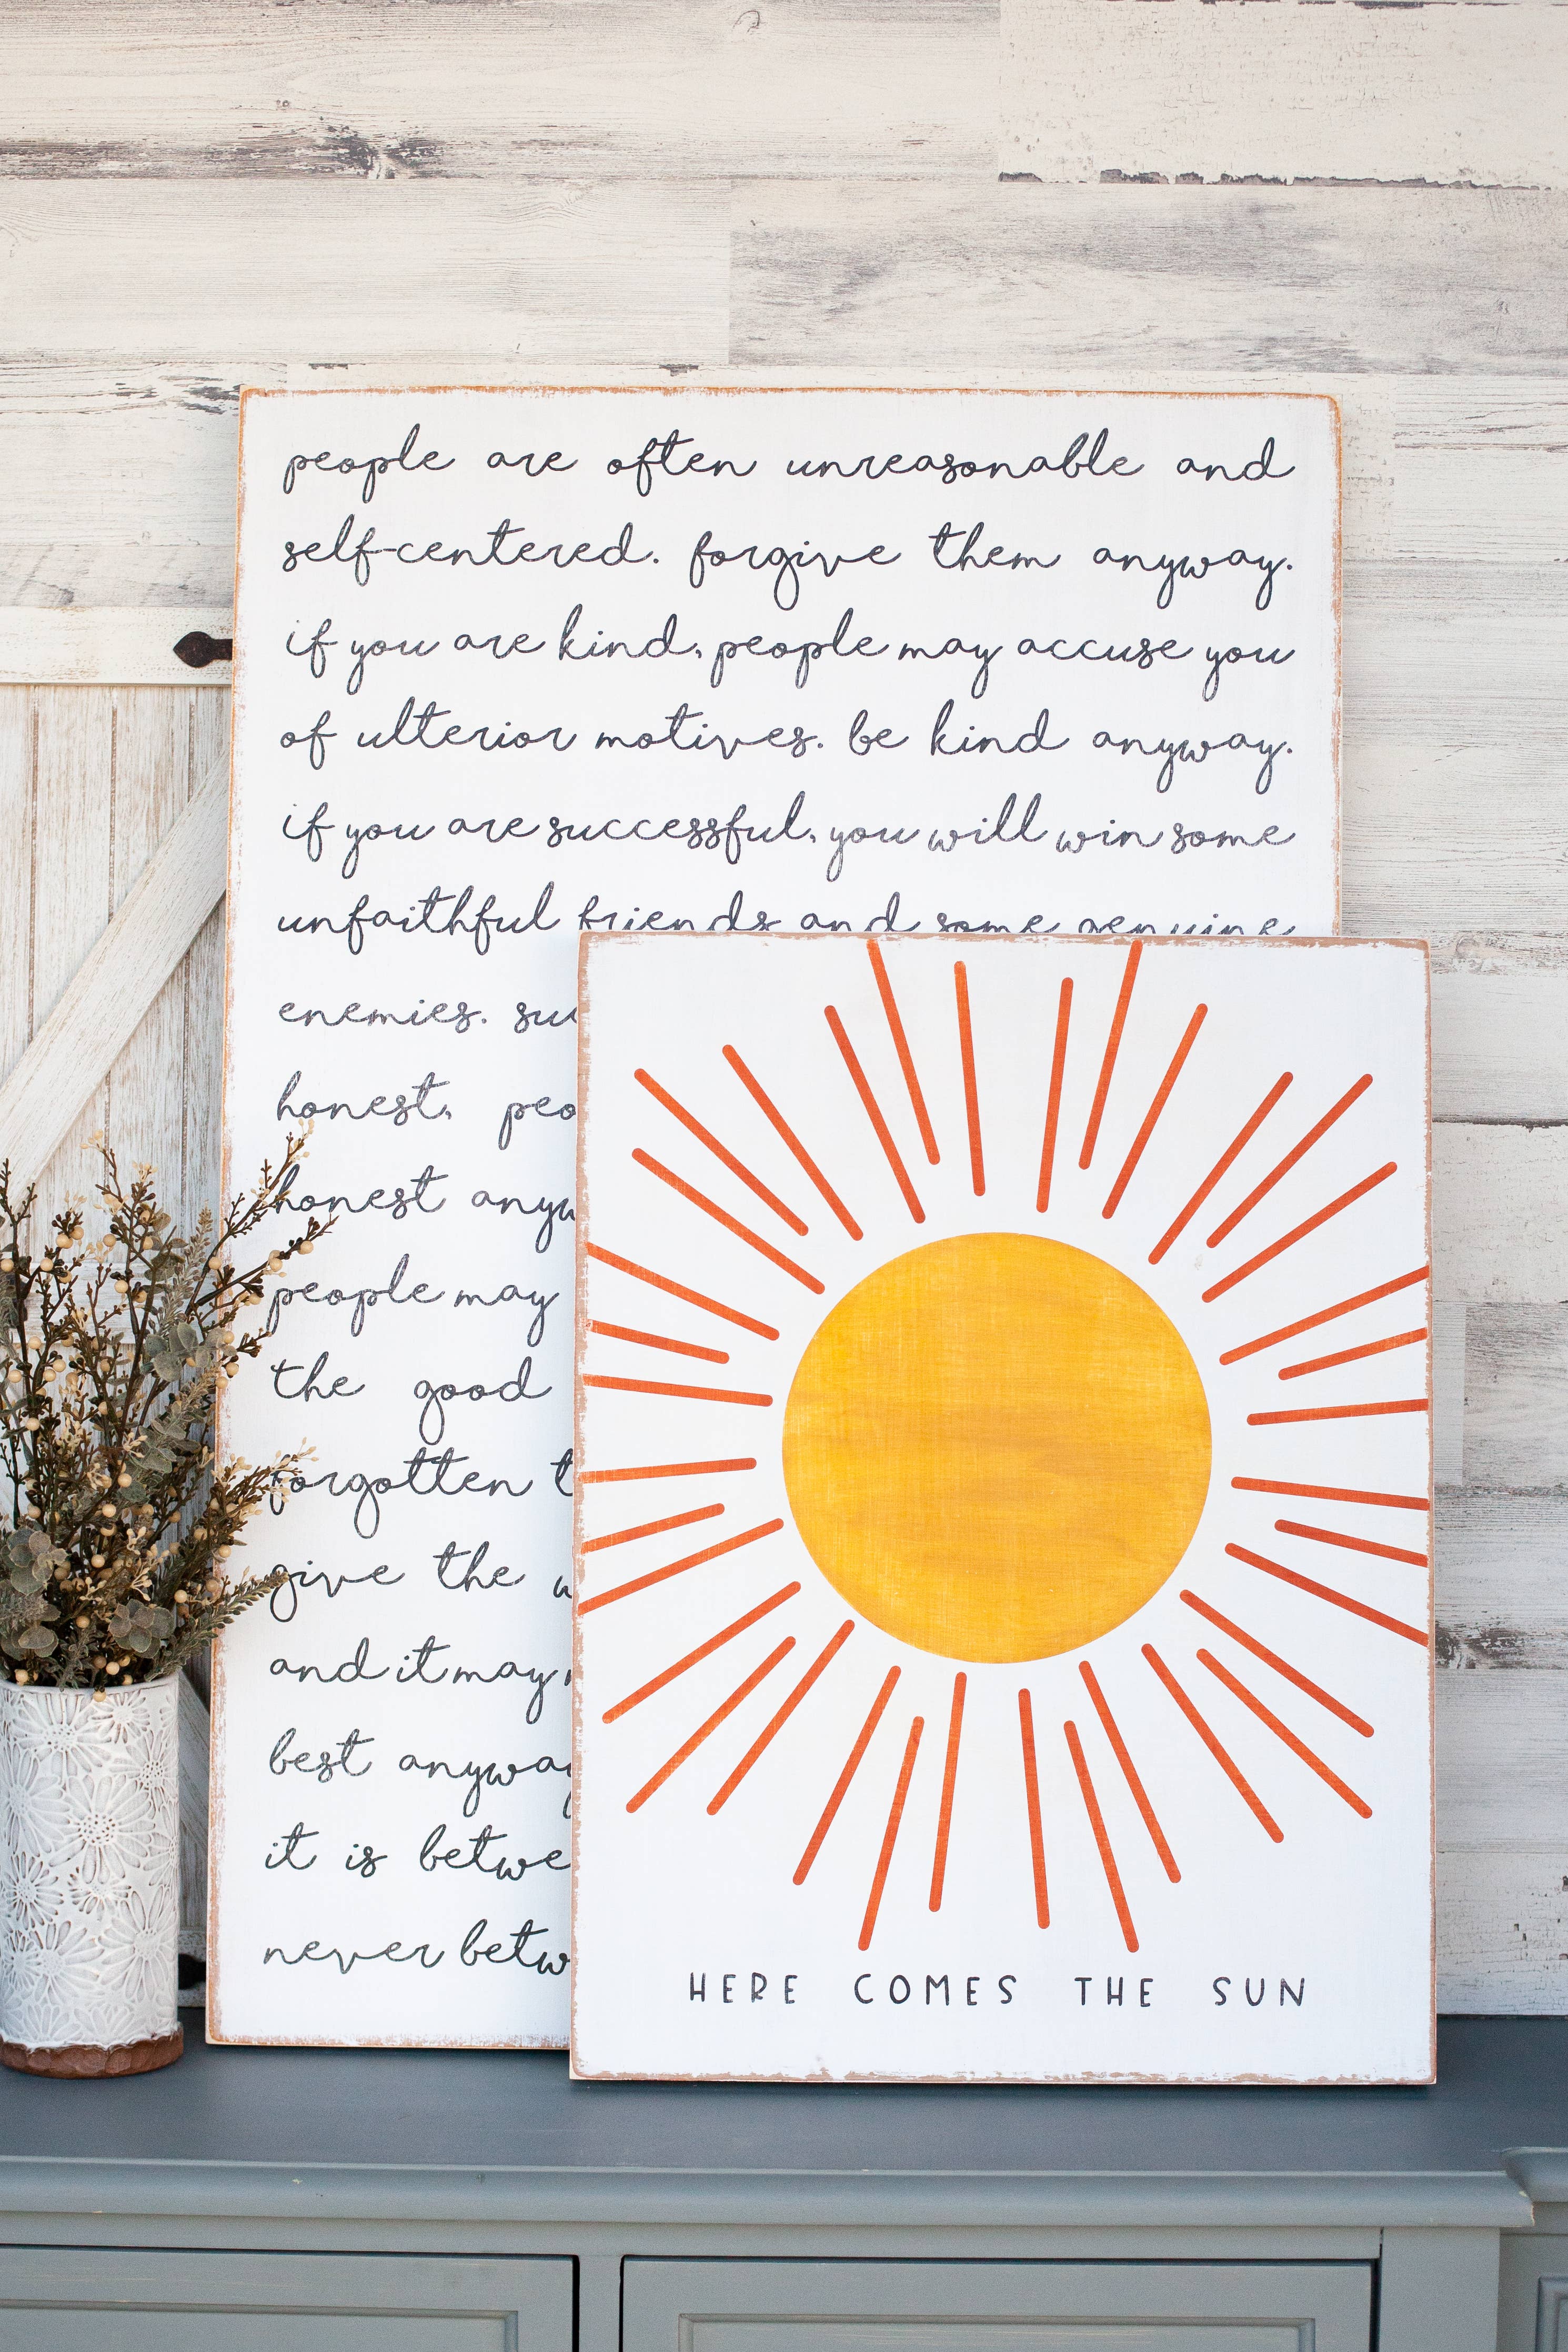 people are often unreasonable and
self-centered. forgive them anyway.
if you are kind, people may accuse you
of ulterior motives. be kind anyway.
if you are successful, you will win some
unfaithful friends and some genuine
enemies.
honest,
honest
people may
the good
forgotten
give the
and it may
best
it is
never
HERE COMES THE SUN